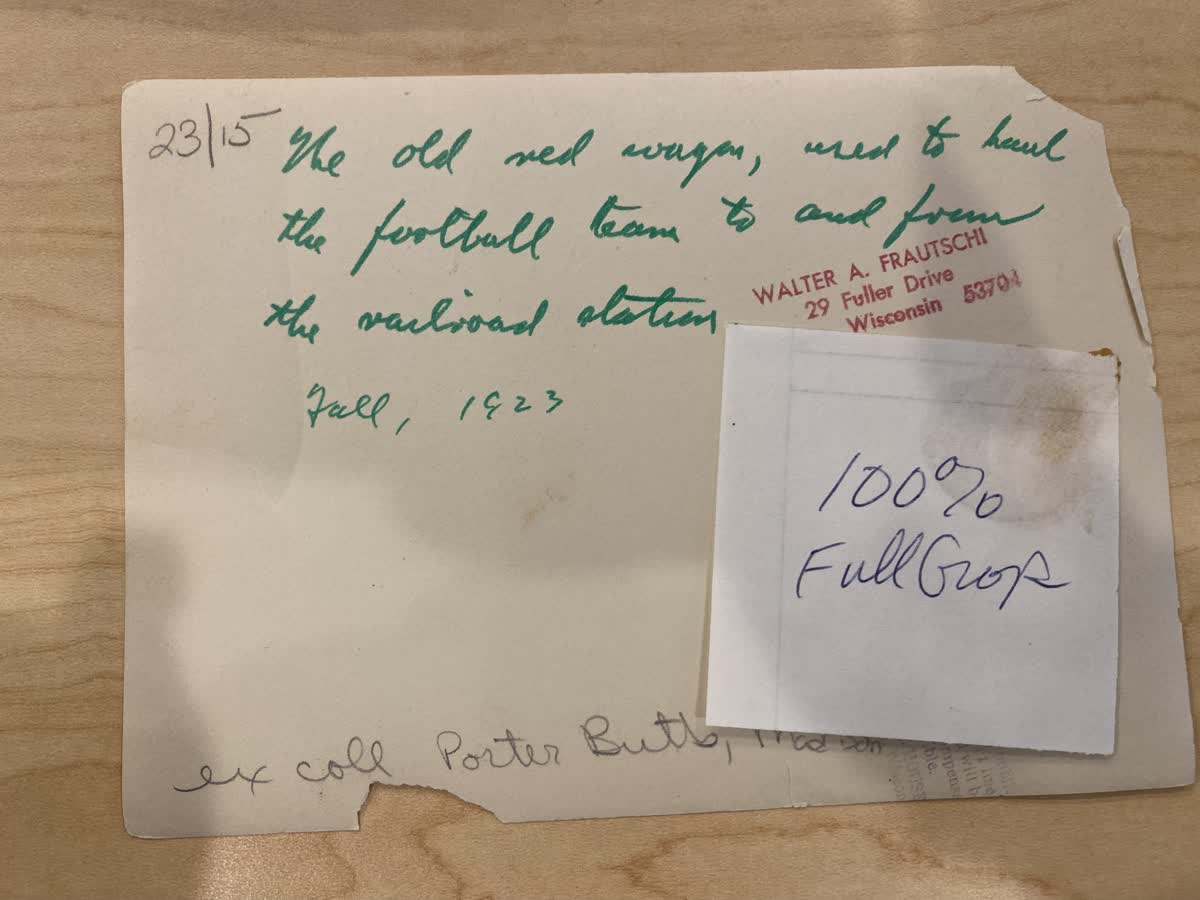 23/15 The old red wagon, used to haul
the football team to and from
the railroad station
Fall, 1923
WALTER A. FRAUTSCHI
29 Fuller Drive
Wisconsin 53704
100%
Full Crop
ex coll Porter Butts, Madison